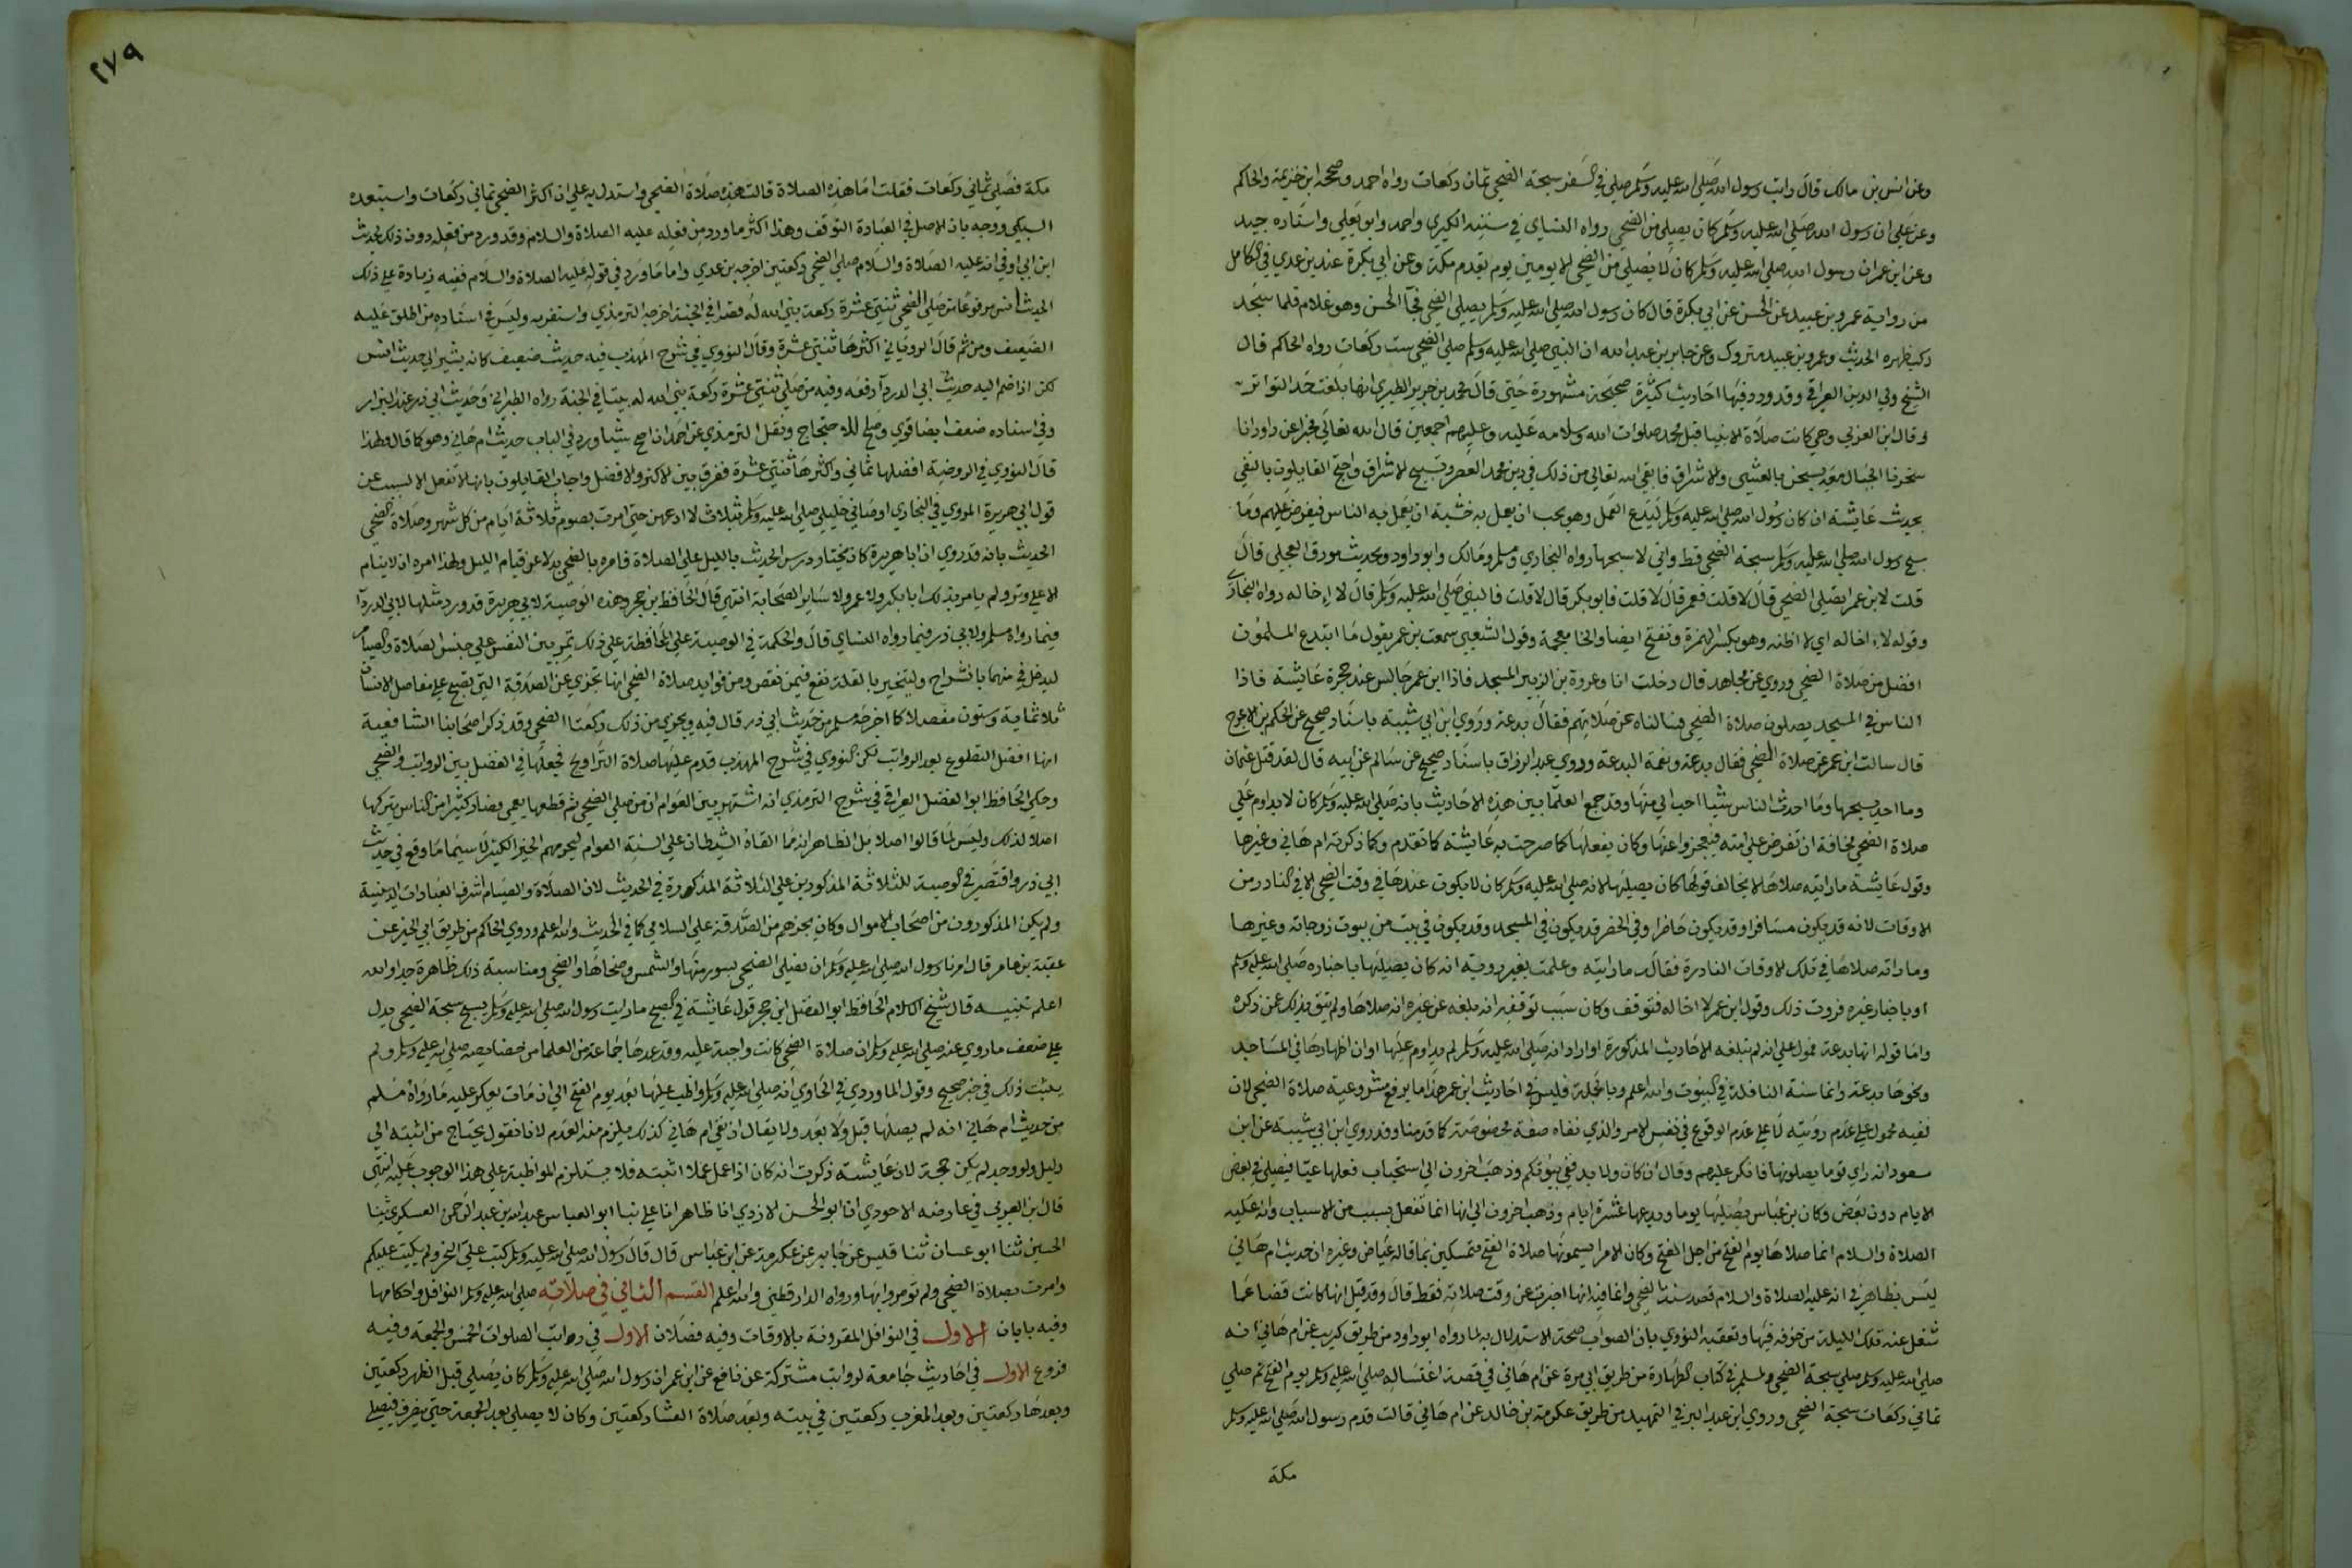 وعن انس بن مالك قال رايت رسول الله صلي الله عليه وسلم صلي في السفر سبحة الضحي ثمان ركعات رواه احمد وصححه ابن خزيمة والحاكم
وعن علي ان رسول الله صلي الله عليه وسلم كان يصلي من الضحي رواه النساي في سننه الكبري واحمد وابو يعلي واسناده جيد
وعن ابن عمر ان رسول الله صلي الله عليه وسلم كان لا يصلي من الضحي الا يومين يوم يقدم مكة وعن ابي بكرة عند بن عدي في الكامل
من رواية عمرو بن عبيد عن الحسن عن ابي بكرة قال كان رسول الله صلي الله عليه وسلم يصلي الضحي فجآ الحسن وهو غلام فلما سجد
ركب ظهره الحديث وعمرو بن عبيد متروك وعن جابر بن عبد الله ان النبي صلي الله عليه وسلم صلي الضحي ست ركعات رواه الحاكم قال
الشيخ ولي الدين العراقي وقد ورد فيها احاديث كثيرة صحيحة مشهورة حتي قال محمد بن جرير الطبري انها بلغت حد التواتر
وقال ابن العربي وهي كانت صلاة الانبيا قبل محمد صلوات الله وسلامه عليه وعليهم اجمعين قال الله تعالي مخبرا عن داود انا
سخرنا الجبال معه يسبحن بالعشي والاشراق فابقي الله تعالي من ذلك في دين محمد العصر وتسبيح الاشراق واحتج القايلون بالنفي
بحديث عايشة ان كان رسول الله صلي الله عليه وسلم ليدع العمل وهو يحب ان يعمل به خشية ان يعمل به الناس فيفرض عليهم وما
سبح رسول الله صلي الله عليه وسلم سبحة الضحي قط واني لاسبحها رواه البخاري ومسلم ومالك وابو داود وبحديث مورق العجلي قال
قلت لابن عمر ايصلي الضحي قال لا قلت فعمر قال لا قلت فابو بكر قال لا قلت فالنبي صلي الله عليه وسلم قال لا إخاله رواه البخاري
وقوله لا اخاله اي لا اظنه وهو بكسر الهمزة وتفتح ايضا والخا معجمة وقول الشعبي سمعت بن عمر يقول ما ابتدع المسلمون
افضل من صلاة الضحي وروي عن مجاهد قال دخلت انا وعروة بن الزبير المسجد فاذا ابن عمر جالس عند حجرة عايشة فاذا
الناس في المسجد يصلون صلاة الضحي فسالناه عن صلاتهم فقال بدعة وروي ابن ابي شيبة باسناد صحيح عن الحكم بن الاعرج
قال سالت ابن عمر عن صلاة الضحي فقال بدعة ونعمة البدعة وروي عبد الرزاق باسناد صحيح عن سالم عن ابيه قال لقد قتل عثمان
وما احد يسبحها وما احدث الناس شيا احب الي منها وقد جمع العلما بين هذه الاحاديث بانه صلي الله عليه وسلم كان لا يداوم علي
صلاة الضحي مخافة ان تفرض علي امته فيعجزوا عنها وكان يفعلها كما صرحت به عايشة كما تقدم وكما ذكرته ام هاني وغيرها
وقول عايشة ما رايته صلاها لا يخالف قولها كان يصليها لانه صلي الله عليه وسلم كان لا يكون عندها في وقت الضحي الا في النادر من
الاوقات لانه قد يكون مسافرا وقد يكون حاضرا وفي الحضر قد يكون في المسجد وقد يكون في بيت من بيوت زوجاته وغيرها
وما راته صلاها في تلك الاوقات النادرة فقالت ما رايته وعلمت بغير روية انه كان يصليها باخباره صلي الله عليه وسلم
او باخبار غيره فروت ذلك وقول ابن عمر لا اخاله فتوقف وكان سبب توقفه انه بلغه عن غيره انه صلاها ولم يثق بذلك عمن ذكره
واما قوله انها بدعة فمؤول علي انه لم تبلغه الاحاديث المذكورة او اراد انه صلي الله عليه وسلم لم يداوم عليها او ان اظهارها في المساجد
ونحوها بدعة وانما سنة النافلة في البيوت والله اعلم وبالجملة فليس في احاديث ابن عمر هذا ما يرفع مشروعية صلاة الضحي لان
نفيه محمول علي عدم رويته لا علي عدم الوقوع في نفس الامر والذي نفاه صفة مخصوصة كما قدمنا وقد روي ابن ابي شيبة عن ابن
مسعود انه راي قوما يصلونها فانكر عليهم وقال ان كان ولا بد ففي بيوتكم وذهب اخرون الي استحباب فعلها غبا فيصلي في بعض
الايام دون بعض وكان بن عباس يصليها يوما ويدعها عشرة ايام وذهب اخرون الي انها انما تفعل بسبب من الاسباب وانه عليه
الصلاة والسلام انما صلاها يوم الفتح من اجل الفتح وكان الامرا يسمونها صلاة الفتح متمسكين بما قاله عياض وغيره ان حديث ام هاني
ليس بظاهر في انه عليه الصلاة والسلام قصد سنة الضحي وانما فيه انها اخبرت عن وقت صلاته فقط قال وقد قيل انها كانت قضا عما
شغل عنه تلك الليلة من حزبه فيها وتعقبه النووي بان الصواب صحة الاستدلال به لما رواه ابو داود من طريق كريب عن ام هاني انه
صلي الله عليه وسلم صلي سبحة الضحي ولمسلم في كتاب الطهارة من طريق ابي مرة عن ام هاني في قصة اغتساله صلي الله عليه وسلم يوم الفتح ثم صلي
ثماني ركعات سبحة الضحي وروي ابن عبد البر في التمهيد من طريق عكرمة بن خالد عن ام هاني قالت قدم رسول الله صلي الله عليه وسلم
مكة
٢٧٩
مكة فصلي ثماني ركعات فقلت اما هذه الصلاة قالت هذه صلاة الضحي واستدل به علي ان اكثر الضحي ثماني ركعات واستبعده
السبكي ووجه بان الاصل في العبادة التوقف وهذا اكثر ما ورد من فعله عليه الصلاة والسلام وقد ورد من فعله دون ذلك كحديث
ابن ابي اوفي انه عليه الصلاة والسلام صلي الضحي ركعتين اخرجه بن عدي واما ما ورد في قوله عليه الصلاة والسلام ففيه زيادة علي ذلك
كحديث انس مرفوعا من صلي الضحي ثنتي عشرة ركعة بني الله له قصرا في الجنة اخرجه الترمذي واستغربه وليس في اسناده من اطلق عليه
الضعيف ومن ثم قال الروياني اكثرها ثنتي عشرة وقال النووي في شرح المهذب فيه حديث ضعيف كانه يشير الي حديث انس
لكن اذا ضم اليه حديث ابي الدردآ رفعه وفيه من صلي ثنتي عشرة ركعة بني الله له بيتا في الجنة رواه الطبراني وحديث ابي ذر عند البزار
وفي اسناده ضعف ايضا قوي وصلح للاحتجاج ونقل الترمذي عن احمد ان اصح شي ورد في الباب حديث ام هاني وهو كما قال ولهذا
قال النووي في الروضة افضلها ثماني واكثرها ثنتي عشرة ففرق بين الاكثر والافضل واجاب القايلون بانها لا تفعل الا لسبب عن
قول ابي هريرة المروي في البخاري اوصاني خليلي صلي الله عليه وسلم بثلاث لا ادعهن حتي اموت بصوم ثلاثة ايام من كل شهر وصلاة الضحي
الحديث بانه قد روي ان ابا هريرة كان يختار درس الحديث بالليل علي الصلاة فامره بالضحي بدلا عن قيام الليل ولهذا امره ان لا ينام
الا علي وتر ولم يامر بذلك ابا بكر ولا عمر ولا ساير الصحابة انتهي قال الحافظ بن حجر وهذه الوصية لابي هريرة قد ورد مثلها لابي الدردآ
فيما رواه مسلم ولابي ذر فيما رواه النساي قال والحكمة في الوصية علي المحافظة علي ذلك تمرين النفس علي جنس الصلاة والصيام
ليدخل في منهما بانشراح ولتنجبر بالقلة نفع فيمن نقص ومن فوايد صلاة الضحي انها تجزي عن الصدقة التي تصبح علي مفاصل الانسان
ثلاثماية وستون مفصلا كما اخرجه مسلم من حديث ابي ذر قال فيه ويجزي من ذلك ركعتا الضحي وقد ذكر اصحابنا الشافعية
انها افضل التطوع بعد الرواتب لكن النووي في شرح المهذب قدم عليها صلاة التراويح فجعلها في الفضل بين الرواتب والضحي
وحكي الحافظ ابو الفضل العراقي في شرح الترمذي انه اشتهر بين العوام ان من صلي الضحي ثم قطعها يعمي فصار كثير من الناس يتركها
اصلا لذلك وليس لما قالوا اصلا بل الظاهر انه مما القاه الشيطان علي السنة العوام ليحرمهم الخير الكثير لا سيما ما وقع في حديث
ابي ذر واقتصر في الوصية للثلاثة المذكورين علي الثلاثة المذكورة في الحديث لان الصلاة والصيام اشرف العبادات البدنية
ولم يكن المذكورون من اصحاب الاموال وكان يجزهم من الصدقة علي السلامي كما في الحديث والله اعلم وروي الحاكم من طريق ابي الخير عن
عقبة بن عامر قال امرنا رسول الله صلي الله عليه وسلم ان نصلي الضحي بسور منها والشمس وضحاها والضحي ومناسبة ذلك ظاهرة جدا والله
اعلم تنبيه قال شيخ الاسلام الحافظ ابو الفضل ابن حجر قول عايشة في الصحيح ما رايت رسول الله صلي الله عليه وسلم يسبح سبحة الضحي يدل
علي ضعف ما روي عنه صلي الله عليه وسلم ان صلاة الضحي كانت واجبة عليه وقد عدها جماعة من العلما من خصايصه صلي الله عليه وسلم ولم
يثبت ذلك في خبر صحيح وقول الماوردي في الحاوي انه صلي الله عليه وسلم واظب عليها بعد يوم الفتح الي ان مات يعكر عليه ما رواه مسلم
من حديث ام هاني انه لم يصلها قبل ولا بعد ولا يقال ان نفي ام هاني كذلك يلزم منه العدم لانا نقول يحتاج من اثبته الي
دليل ولو وجد لم يكن حجة لان عايشة ذكرت انه كان اذا عمل عملا اثبته فلا يستلزم المواظبة علي هذا الوجوب عليه انتهي
قال بن العربي في عارضه الاحوذي انا ابو الحسن الازدي انا طاهر انا علي نبا ابو العباس عبد الله بن عبد الرحمن العسكري ثنا
الحسين ثنا ابو غسان ثنا قيس عن جابر عن عكرمة عن ابن عباس قال قال رسول الله صلي الله عليه وسلم كتب علي النحر ولم يكتب عليكم
وامرت بصلاة الضحي ولم تومروا بها ورواه الدارقطني والله اعلم القسم الثاني في صلاته صلي الله عليه وسلم النوافل واحكامها
وفيه بابان الاول في النوافل المقرونة بالاوقات وفيه فصلان الاول في رواتب الصلوات الخمس والجمعة وفيه
فروع الاول في احاديث جامعة لرواتب مشتركة عن نافع عن ابن عمر ان رسول الله صلي الله عليه وسلم كان يصلي قبل الظهر ركعتين
وبعدها ركعتين وبعد المغرب ركعتين في بيته وبعد صلاة العشا ركعتين وكان لا يصلي بعد الجمعة حتي ينصرف فيصلي